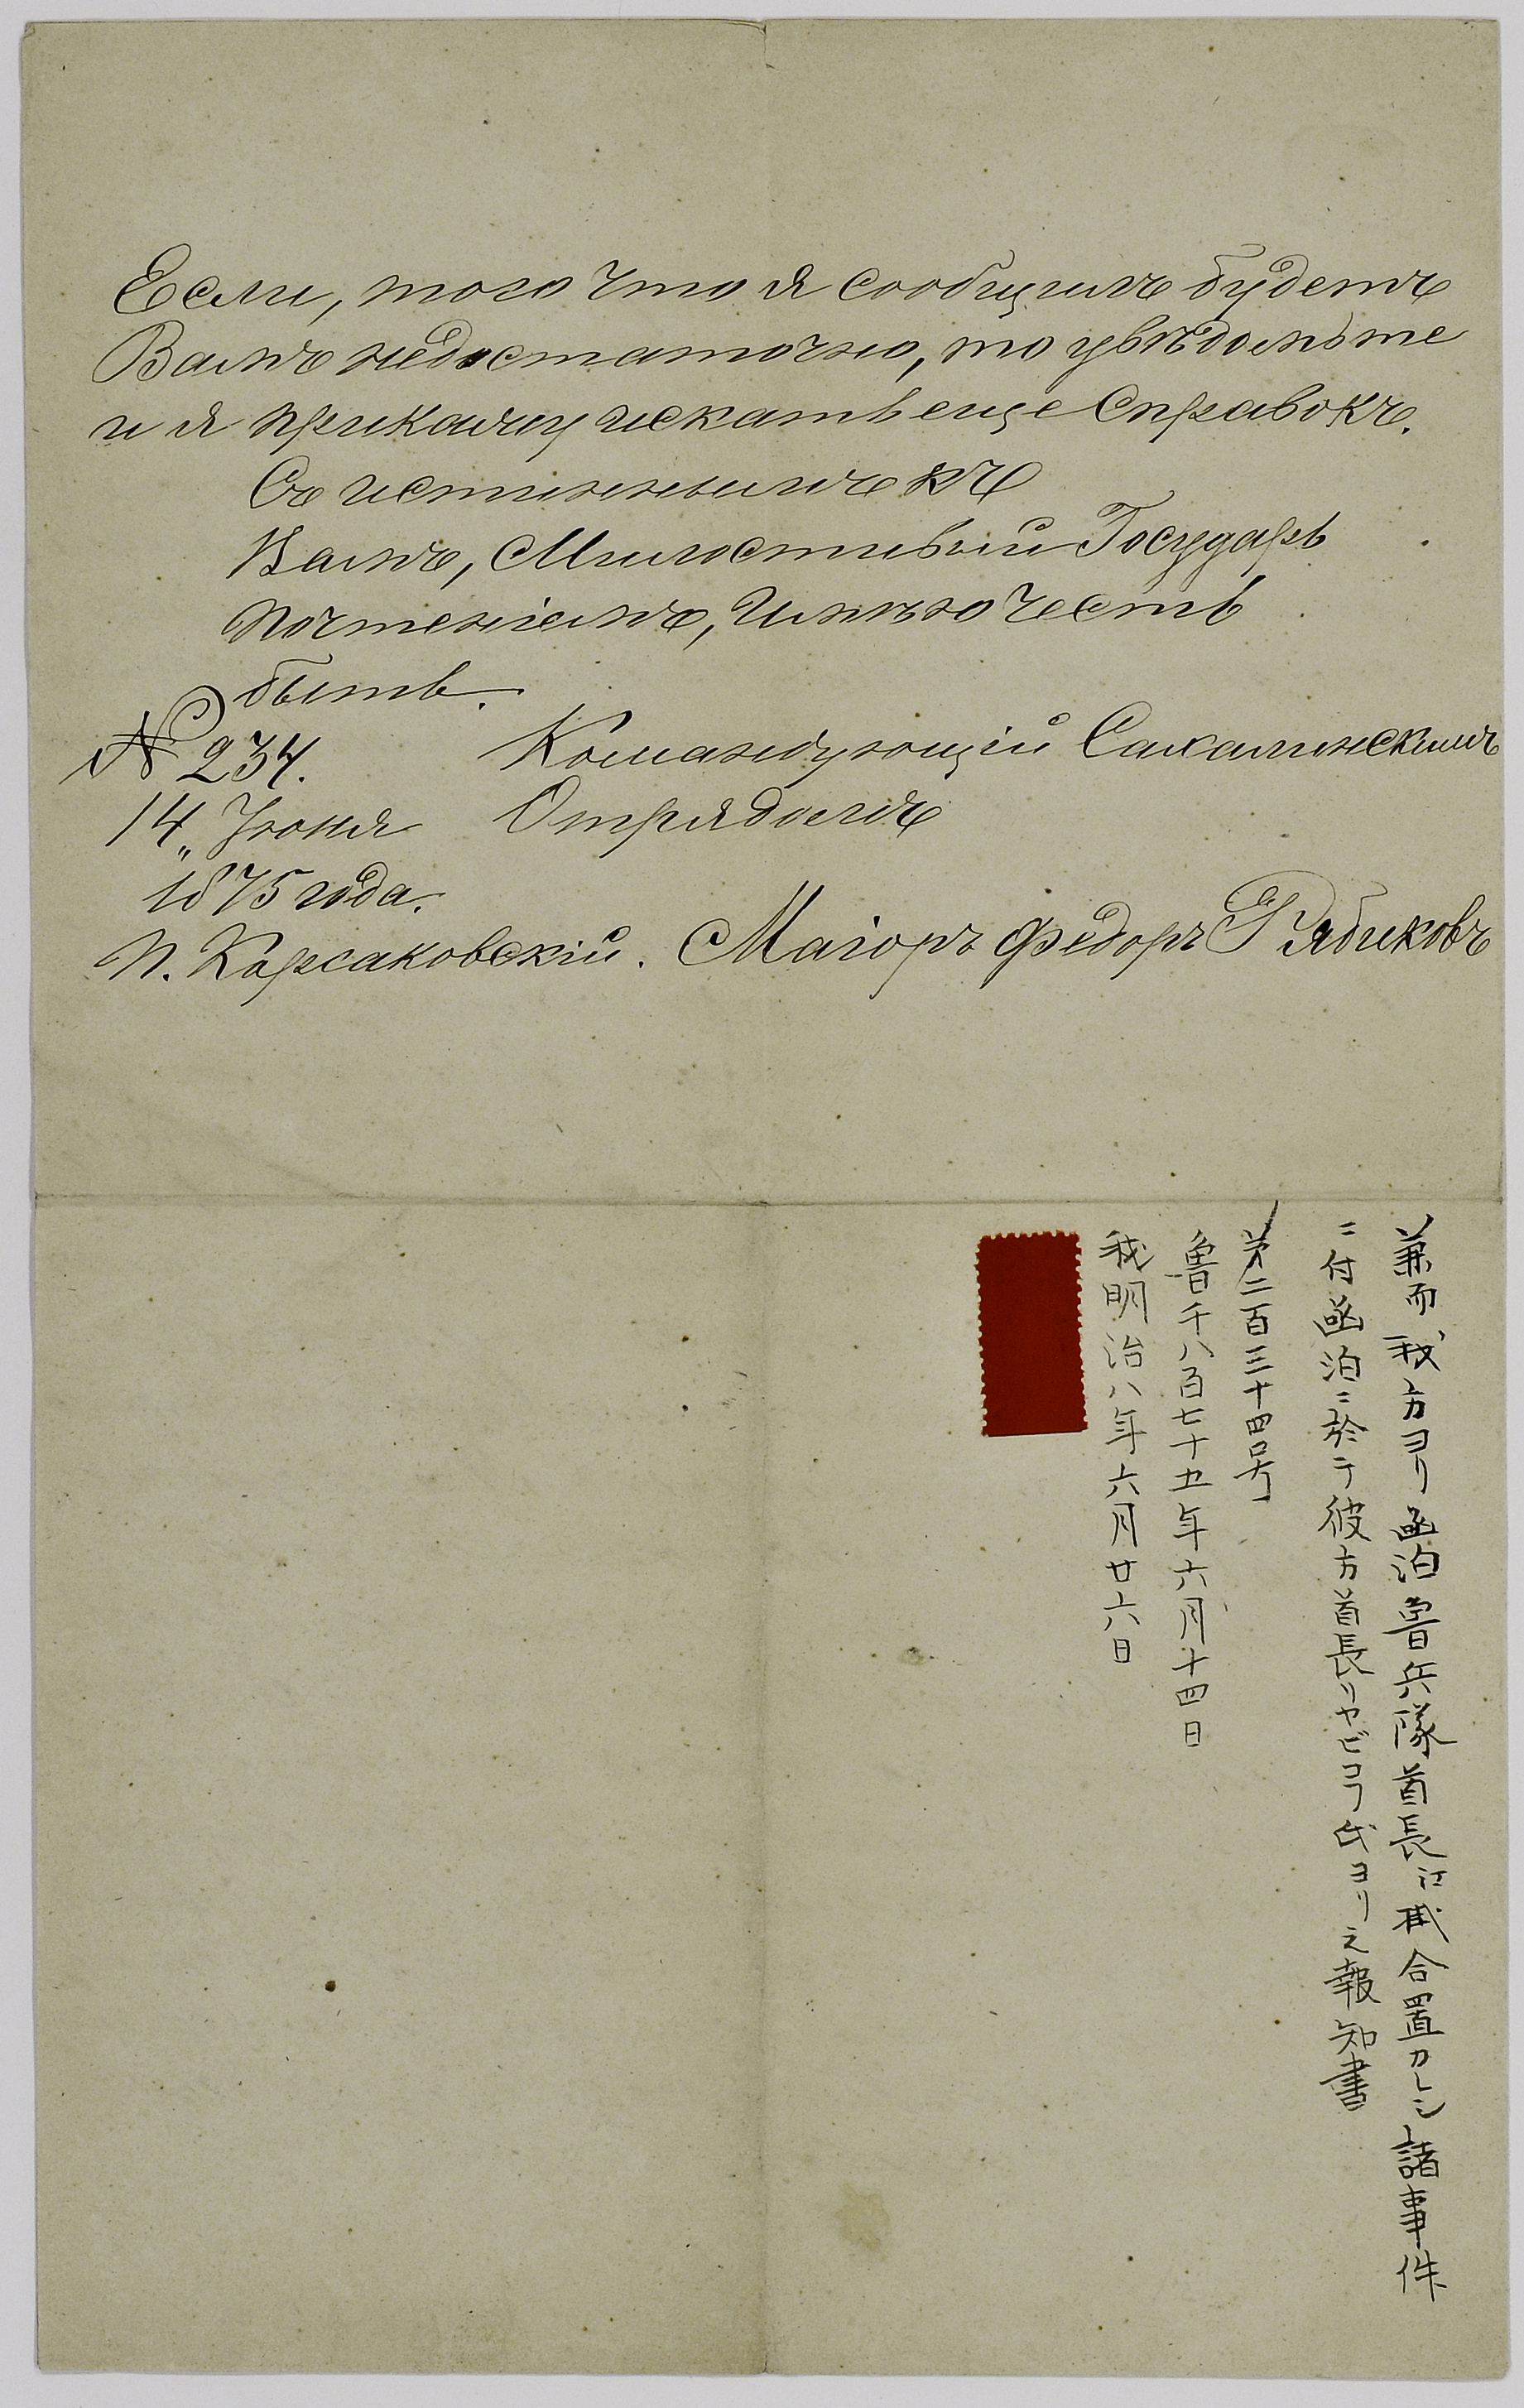 Если, того что я сообщилъ будетъ
Вамъ недостаточно, то увѣдомьте
и я прикажу искать еще справокъ.
Съ истиннымъ къ
Вамъ, Милостивый Государь
почтеніемъ, имѣю честь
быть.
№ 234.
14„ Іюня
1875 года.
П. Корсаковскій.
Командующій Сахалинскимъ
Отрядомъ
Маіоръ Федоръ Рябиковъ
兼而我方ヨリ函泊魯兵隊首長江掛合置カレシ諸事件
ニ付函泊ニ於テ彼方首長リヤビコフ氏ヨリ之報知書
第二百三十四号
魯千八百七十五年六月十四日
我明治八年六月廿六日